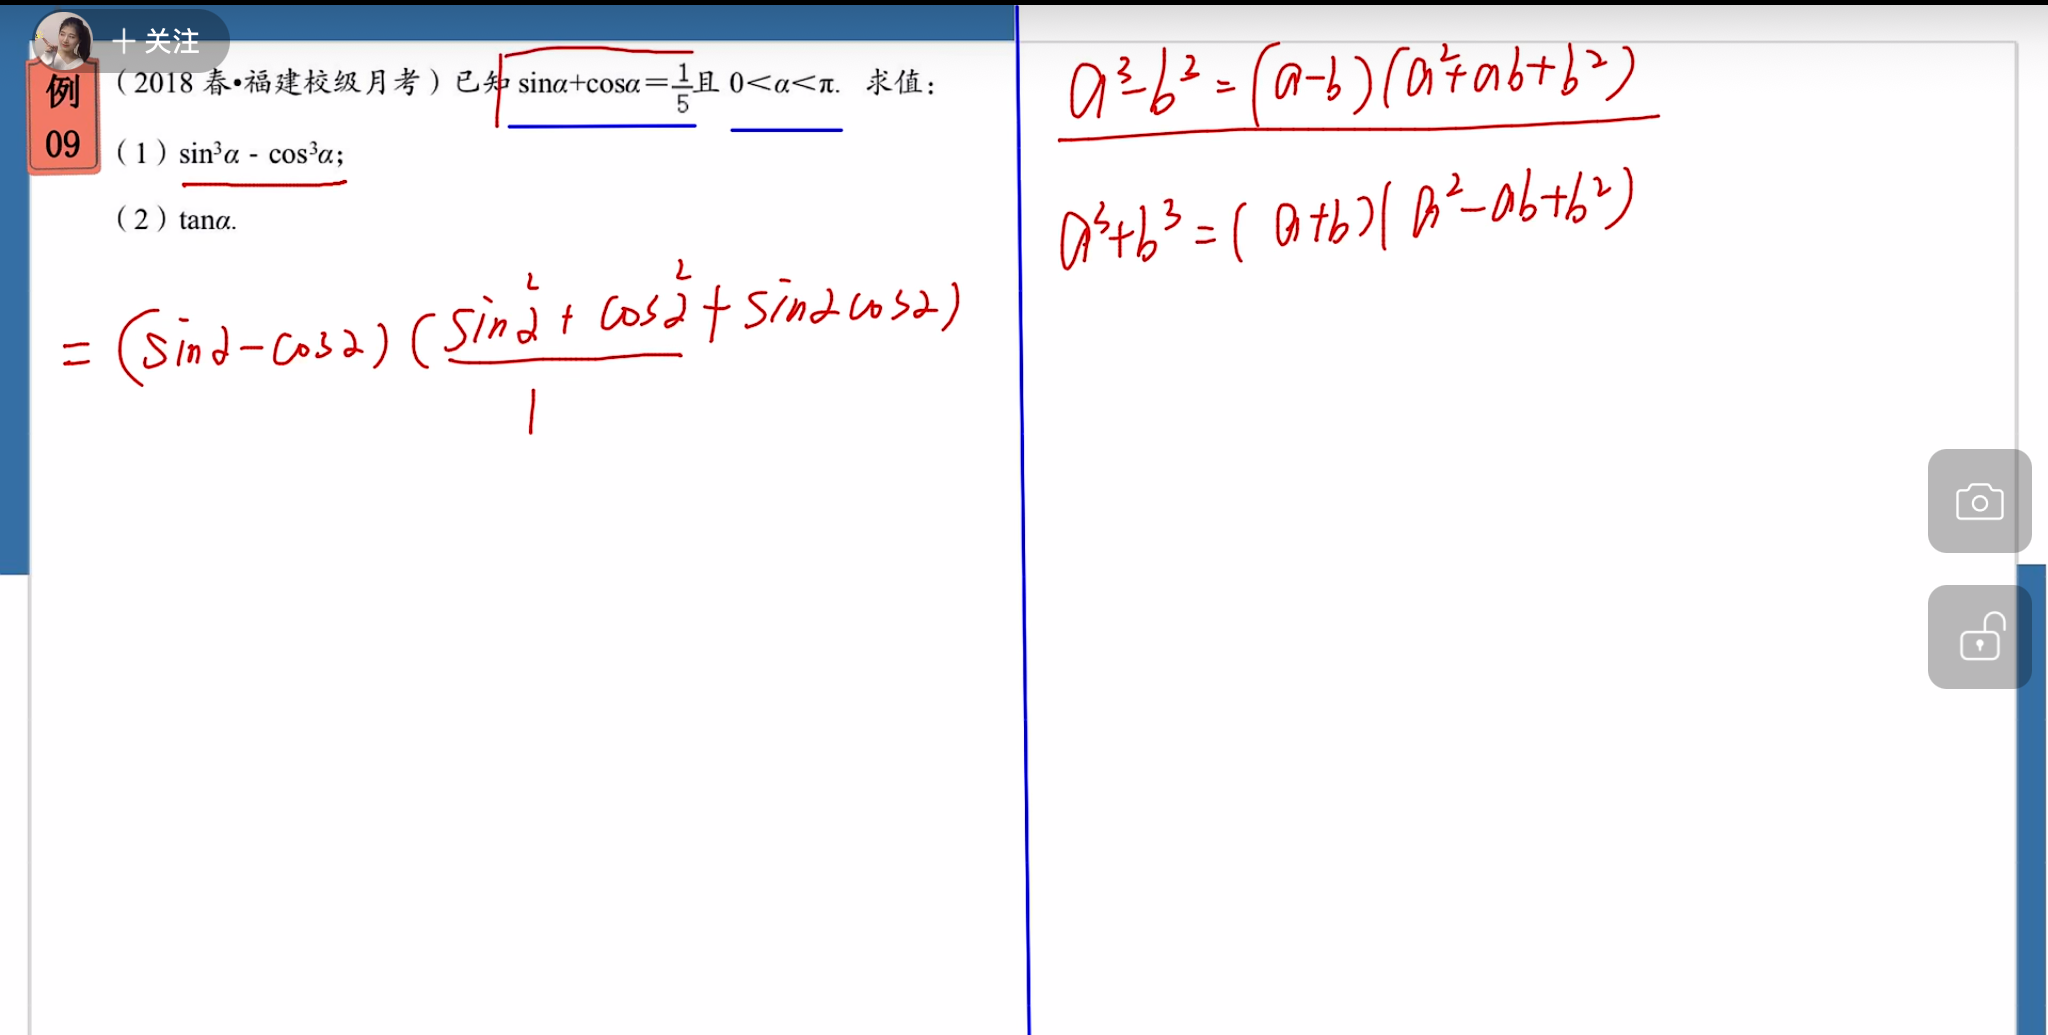 十 关注
例
09
（2018 春•福建校级月考）已知 sinα+cosα=1/5且 0<α<π. 求值：
（1）sin³α - cos³α;
（2）tanα.
= (sinα-cosα)(sin²α+cos²α+sinαcosα)
1
a³-b³=(a-b)(a²+ab+b²)
a³+b³=(a+b)(a²-ab+b²)